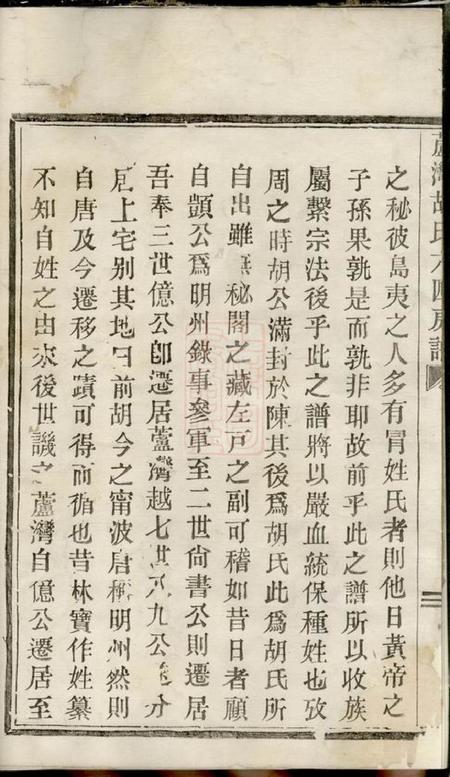 蘆灣胡氏六四房譜
之秘彼島夷之人多有冒姓氏者則他日黃帝之
子孫果孰是而孰非耶故前乎此之譜所以收族
屬繫宗法後乎此之譜將以嚴血統保種姓也攷
周之時胡公滿封於陳其後爲胡氏此爲胡氏所
自出雖無秘閣之藏左戸之副可稽如昔日者顧
自顗公爲明州錄事參軍至二世尙書公則遷居
吾奉三世億公卽遷居蘆灣越七世六九公分
居上宅别其地曰前胡今之甯波唐稱明州然則
自唐及今遷移之蹟可得而循也昔林寶作姓纂
不知自姓之由來後世譏之蘆灣自億公遷居至